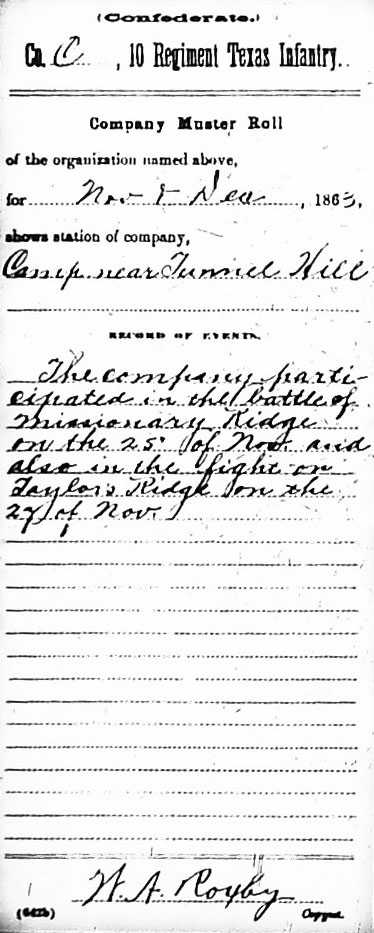 (Confederate.)
Co. C , 10 Regiment Texas Infantry.
Company Muster Roll
of the organization named above,
for Nov & Dec , 1863,
shows station of company,
Camp near Tunnel Hill
RECORD OF EVENTS.
The company parti-
cipated in the battle of
Missionary Ridge
on the 25" of Nov. and
also in the fight on
Taylors Ridge on the
27 of Nov.
W. A. Roxby
(642b) Copyist.